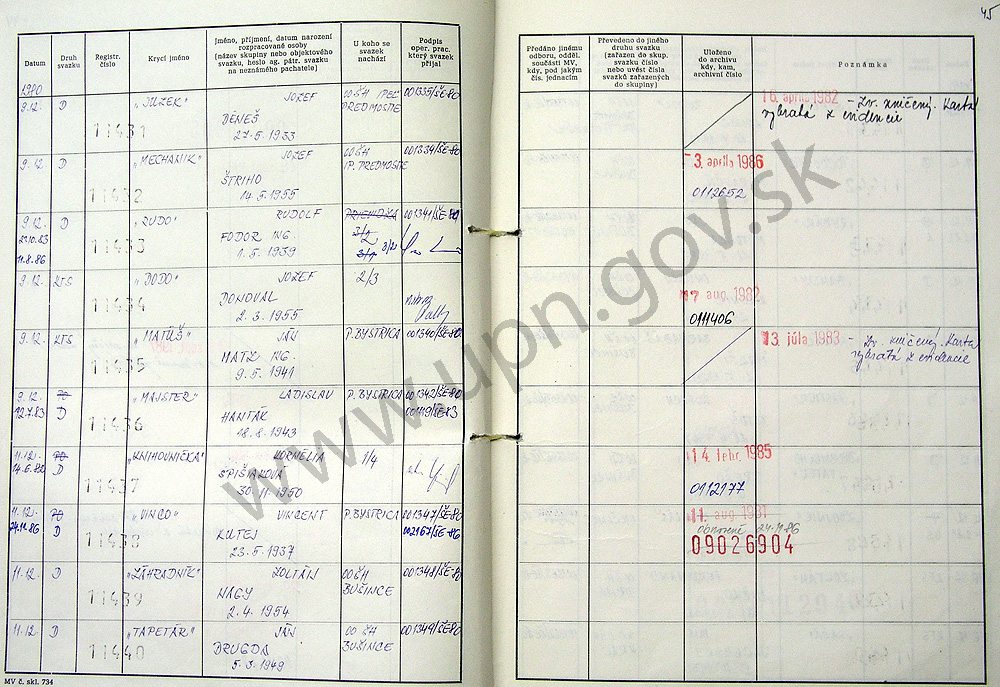 45
Datum
Druh svazku
Registr. číslo
Krycí jméno
Jméno, příjmení, datum narození rozpracované osoby (název skupiny nebo objektového svazku, heslo ag. pátr. svazku na neznámého pachatele)
U koho se svazek nachází
Podpis oper. prac. který svazek přijal
Předáno jinému odboru, odděl. součásti MV, kdy, pod jakým čís. jednacím
Převedeno do jiného druhu svazku (zařazen do skup. svazků nebo uvést čísla svazků zařazených do skupiny)
Uloženo do archivu kdy, kam, archivní číslo
Poznámka
1980
9.12. D 11431 "JOZEK" JOZEF
DENEŠ
27.5.1933
001335/ŠE-80
16. apríla 1982 - Zv. zničený. Karta
vybratá z evidencie
9.12. D 11432 "MECHANIK" JOZEF
ŠTRIHO
14.5.1955
001339/ŠE-80
3. apríla 1986
0112652
9.12. D 11433 "RUDO" RUDOLF
FODOR ING.
1.5.1939
11.8.86
3/2
001341/ŠE-80
9.12. KTS 11434 "DODO" JOZEF 2/3
DONOVAL
2.3.1955
aug. 1982
0111406
9.12. KTS 11435 "MATÚŠ" JÁN P. BYSTRICA 001340/ŠE-80
MATZ ING.
9.5.1941
13. júla 1983 - Zv. zničený. Karta
vybratá z evidencie
9.12. PO 11436 "MAJSTER" LADISLAV P. BYSTRICA 001342/ŠE-80
12.7.83 D
HANTÁK
18.8.1943
11.12. PO 11437 "KNIHOVNIČKA" KORNÉLIA 1/4
14.6.82 D
SPIŠIAKOVÁ
30.11.1950
14. febr. 1985
0112177
11.12. PO 11438 "VINCO" VINCENT P. BYSTRICA 001347/ŠE-80
24.11.86 D
002167/ŠE-86
KUTEJ
23.5.1937
11. aug. 1981
obnovené 24.11.86
09026904
11.12. D 11439 "ZÁHRADNÍK" ZOLTÁN OO ŠH BUŠINCE 001348/ŠE-80
NAGY
2.4.1954
11.12. D 11440 "TAPETÁR" JÁN OO ŠH BUŠINCE 001349/ŠE-80
DRUGDA
5.3.1949
MV č. skl. 734
www.upn.gov.sk